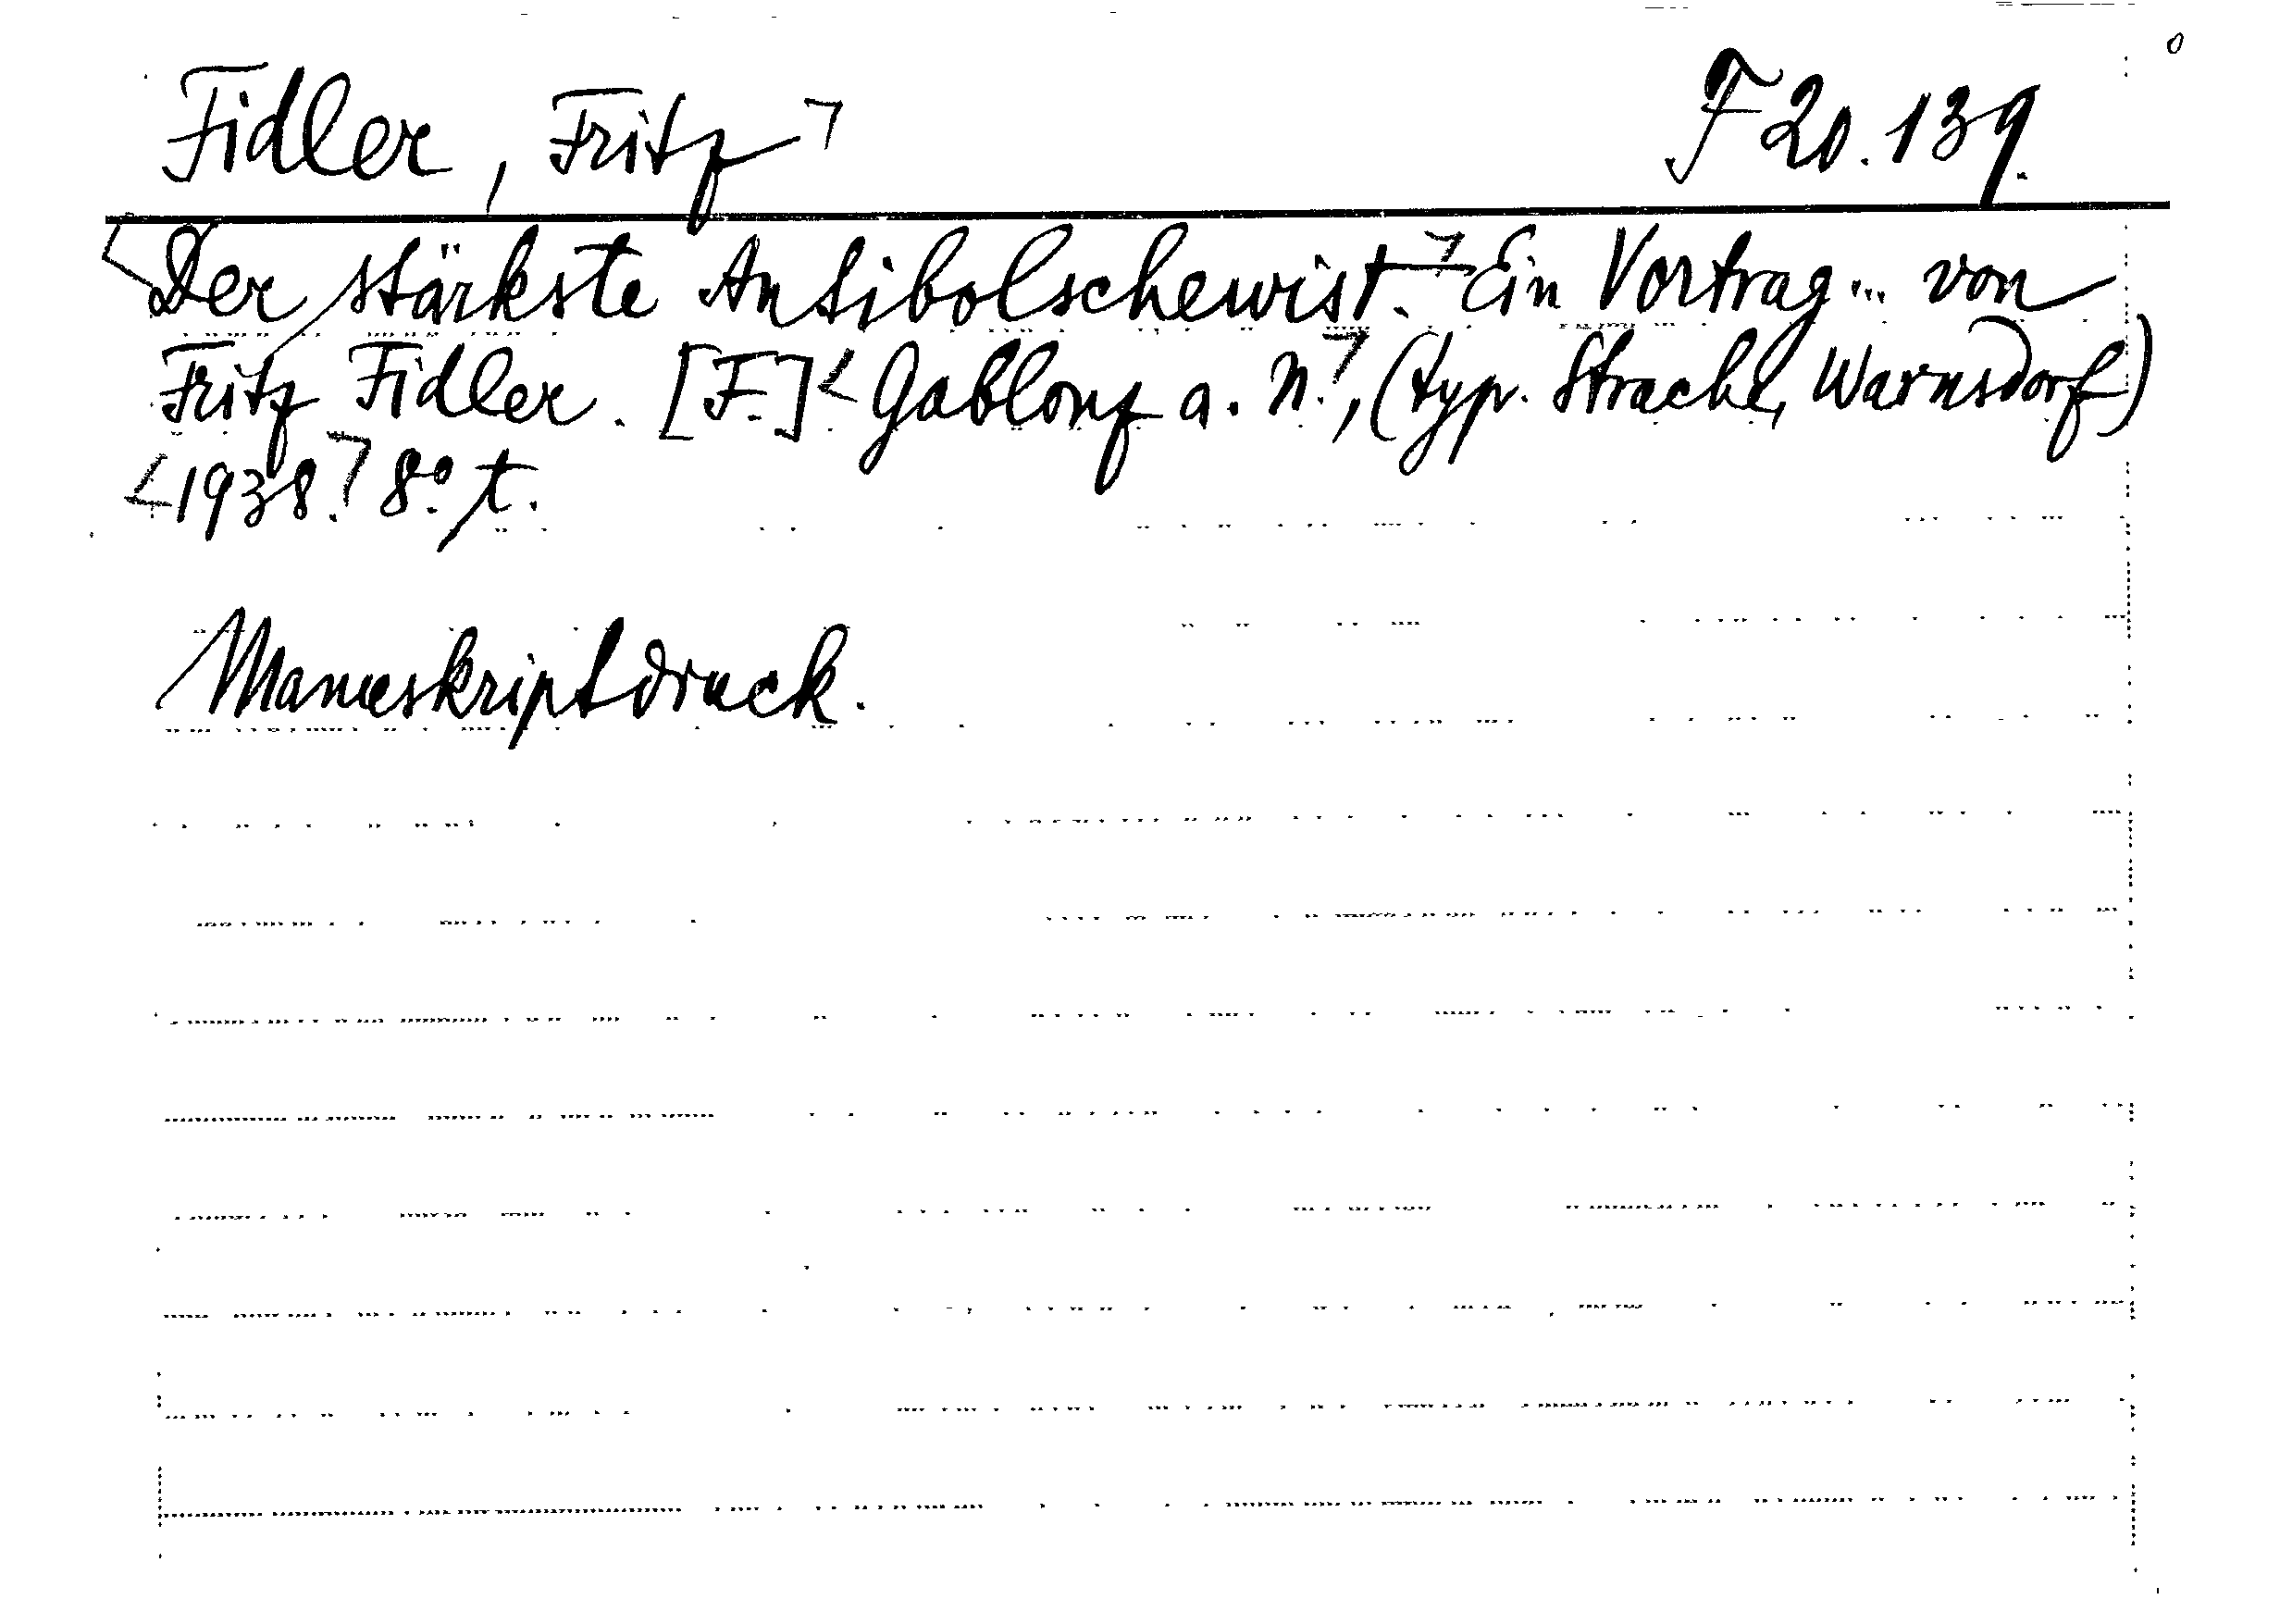 Fidler, Fritz ⌝ F 20.139.
<Der stärkste Antibolschewist.⌝ Ein Vortrag ... von
Fritz Fidler. [F.] <Gablonz a. N.⌝, (typ. Strache, Warnsdorf)
<1938.⌝ 8° t.
Manuskriptdruck.